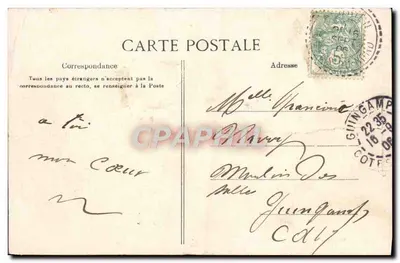 CARTE POSTALE
Correspondance
Adresse
Tous les pays étrangers n'acceptent pas la
correspondance au recto, se renseigner à la Poste
a toi
mon Cœur
Melle
Moulin des
Salles
Guingamp
CdN
GUINGAMP
22 35
CARTPOSTALES.COM